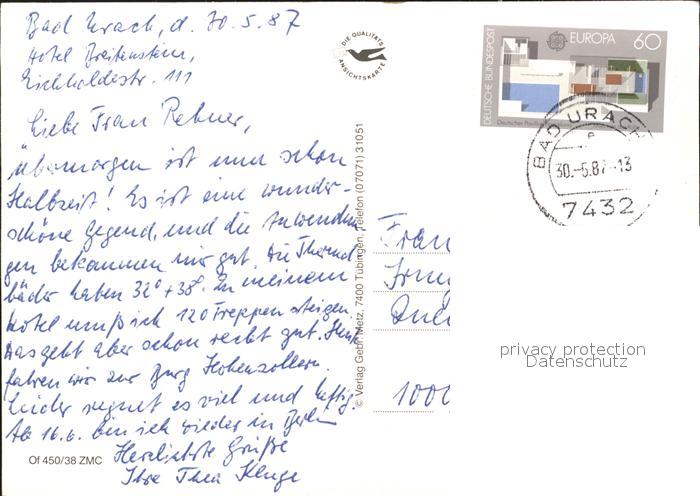 Bad Urach, d. 30.5.87
Hotel Breitenstein,
Eichhaldestr. 111
Liebe Frau Rebner,
übermorgen ist nun schon
Halbzeit! Es ist eine wunder-
schöne Gegend, und die Anwendun-
gen bekommen mir gut. Die Thermal-
bäder haben 32° + 38°. In meinem
Hotel muß ich 120 Treppen steigen.
Das geht aber schon recht gut. Heute
fahren wir zur Burg Hohenzollern.
Leider regnet es viel und heftig.
Ab 16.6. bin ich wieder in Berlin
Herzlichste Grüße
Ihre Thea Kluge
Of 450/38 ZMC
DIE QUALITÄTS
ANSICHTSKARTE
© Verlag Gebr. Metz, 7400 Tübingen, Telefon (07071) 31051
DEUTSCHE BUNDESPOST
EUROPA 60
Deutscher Pavillon
BAD URACH
30.-5.87-13
7432
Frau
Irmg
1000
privacy protection
Datenschutz